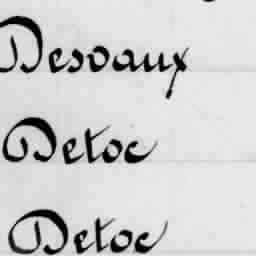 Desvaux
Detoc
Detoc